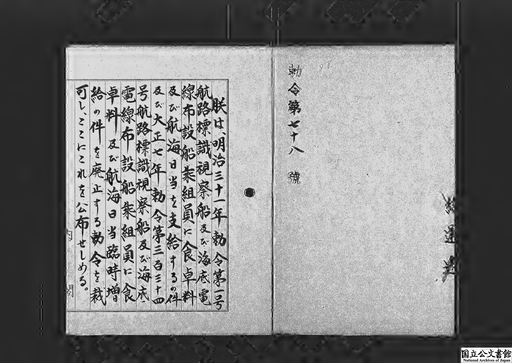 勅令第七十八號
朕は、明治三十一年勅令第一号
航路標識視察船及び海底電
線布設船乗組員に食卓料
及び航海日当を支給するの件
及び大正七年勅令第三百三十四
号航路標識視察船及び海底
電線布設船乗組員に食
卓料及び航海日当臨時増
給の件を廃止する勅令を裁
可し、ここにこれを公布せしめる。
内閣
国立公文書館
National Archives of Japan